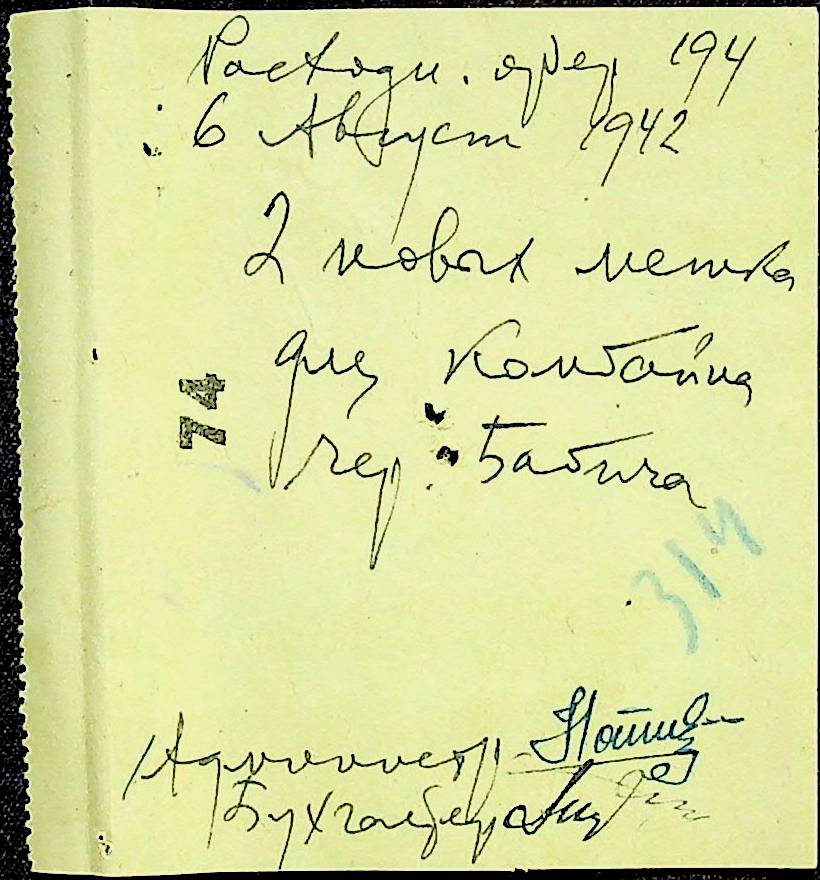 Расходн. орд 194
6 Август 1942
2 новых мешка
для Комбайна
74
чер. Бабича
314
Администр.
Бухгалтер